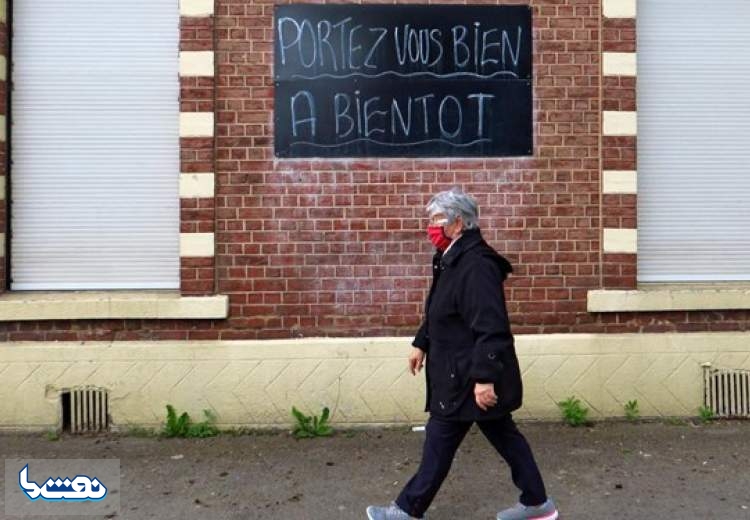 PORTEZ VOUS BIEN
A BIENTOT
نفت ما